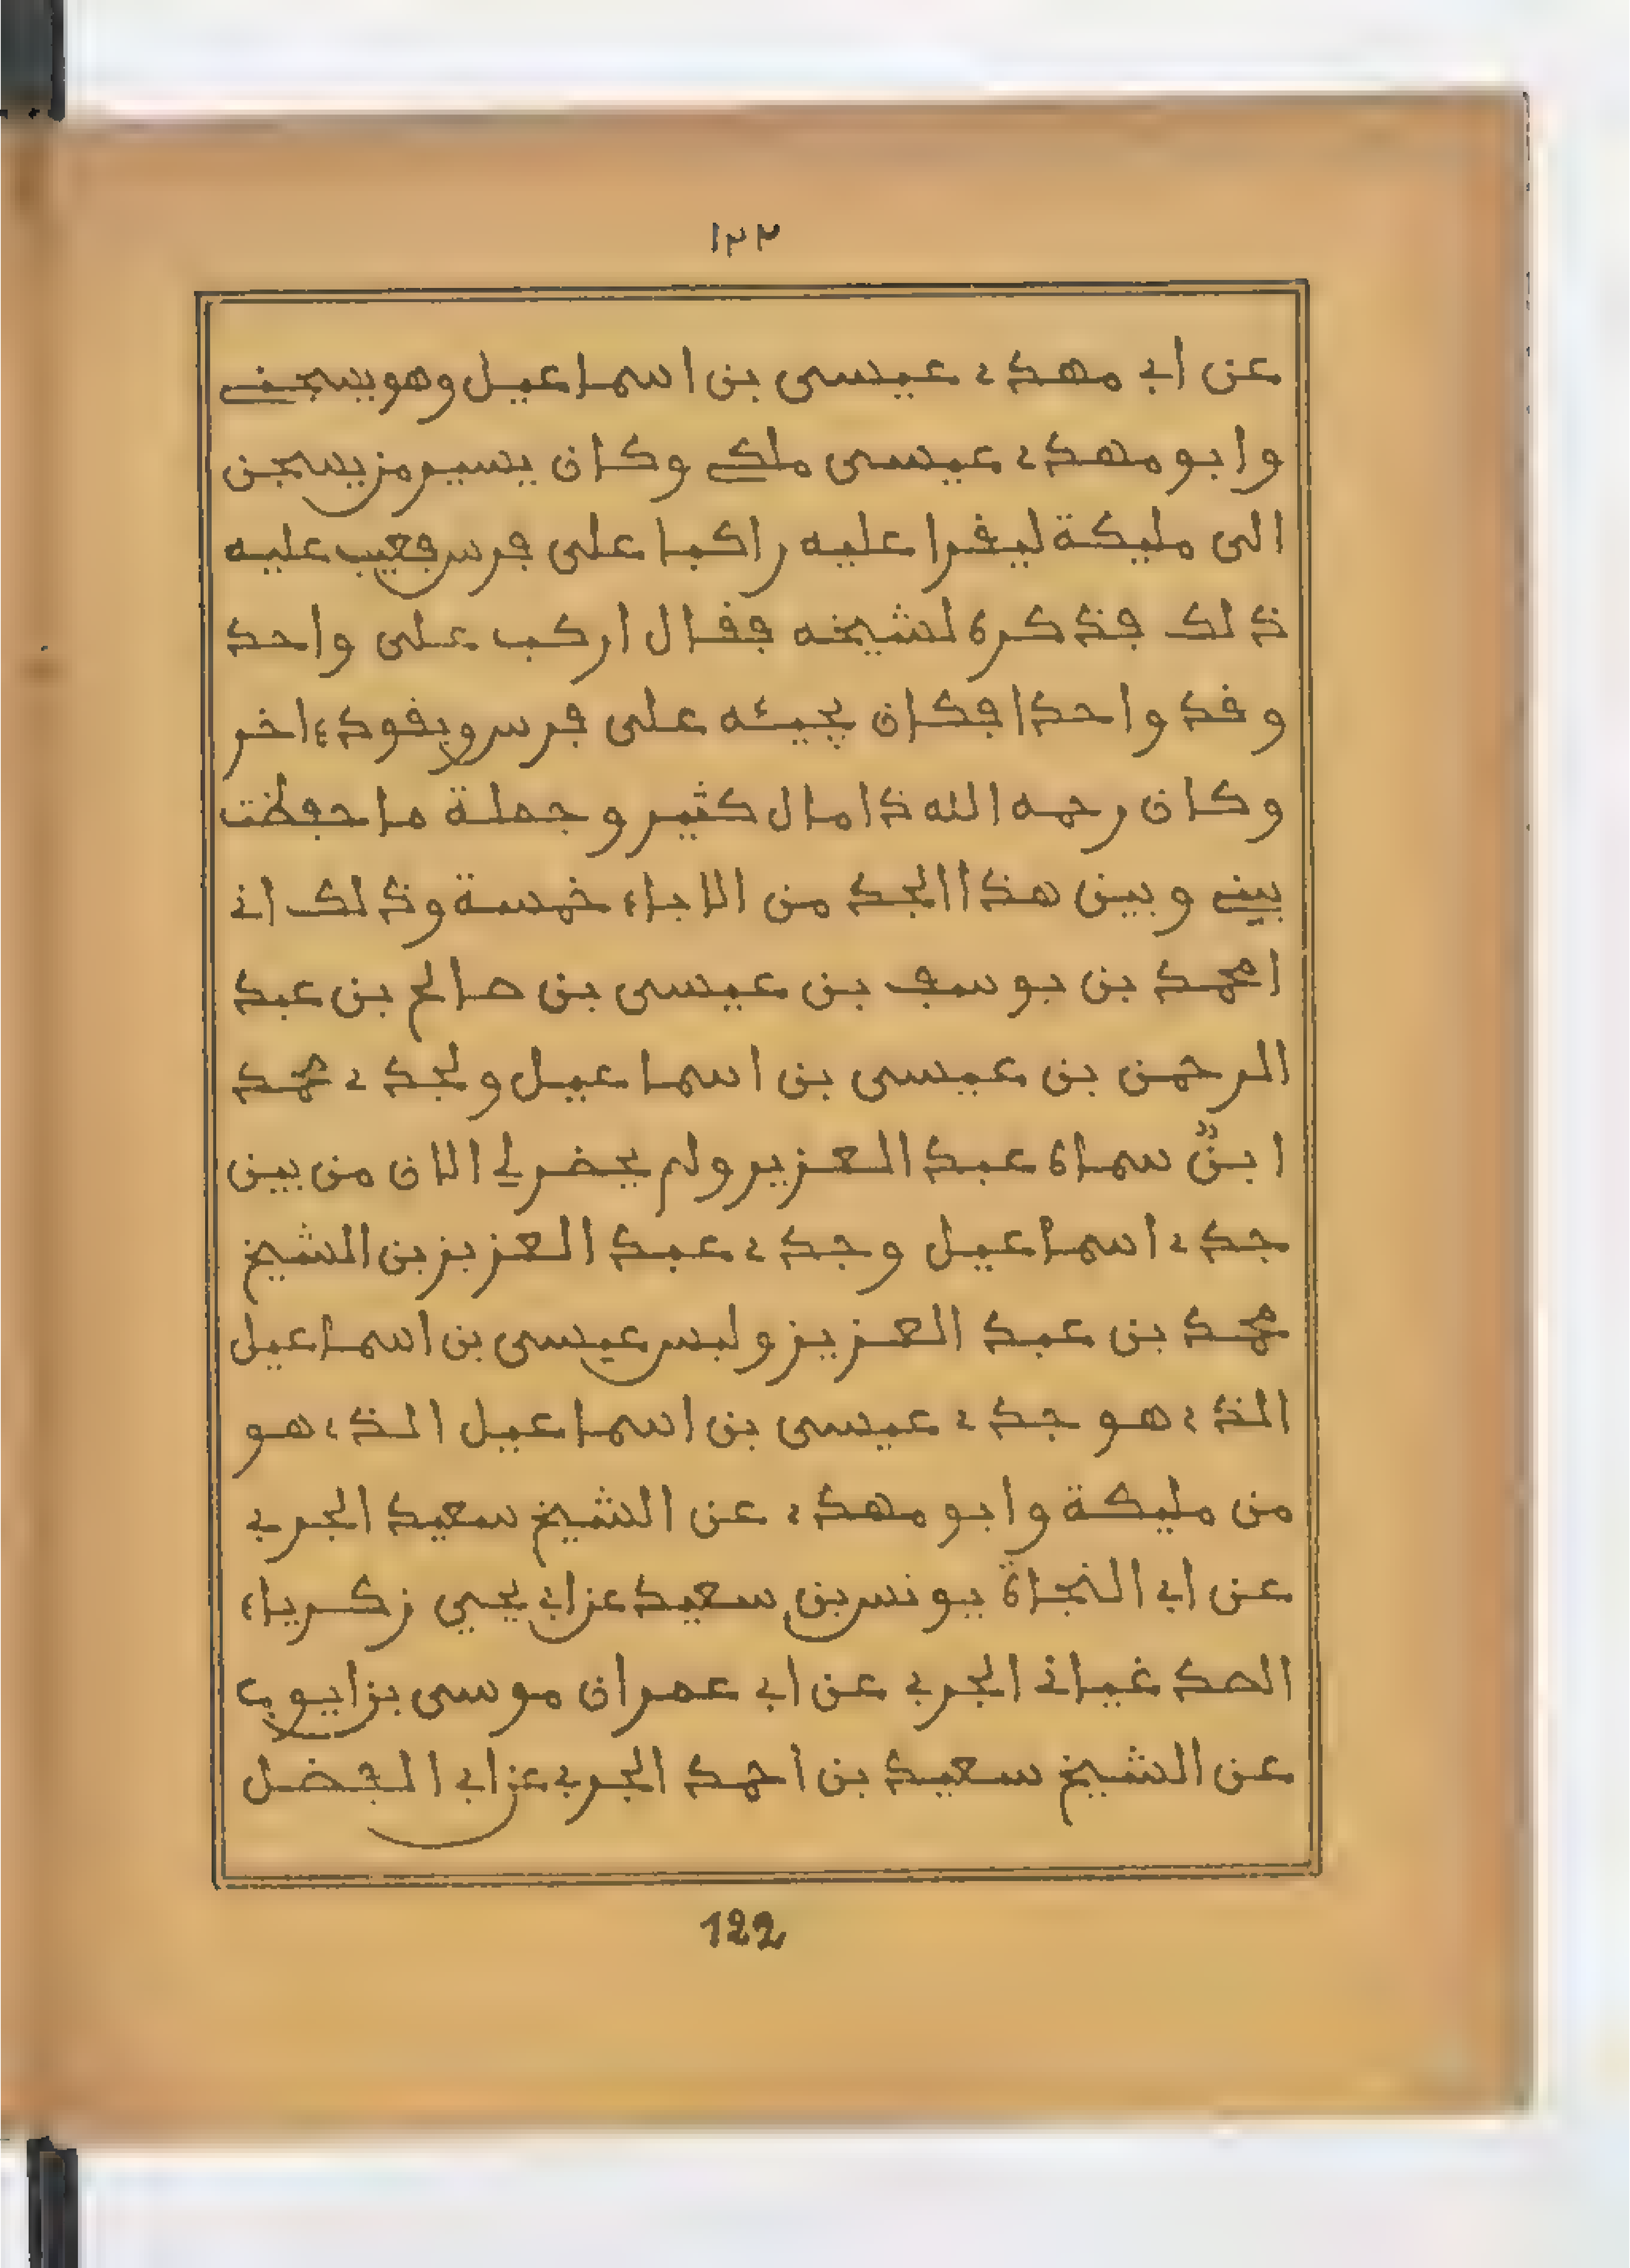 ١٢٢
عن ابي مهدي عيسى بن اسماعيل وهو يسجني
وابو مهدي عيسى ملكي وكان يسير من يسجن
الى مليكة ليقرا عليه راكبا على فرس فعيب عليه
ذلك فذكره لشيخه فقال اركب على واحد
وقد واحدا فكان يجيئه على فرس ويقود ءاخر
وكان رحمه الله ذا مال كثير وجملة ما حفظت
بيني وبين هذا الجد من الاباء خمسة وذلك اني
امحمد بن يوسف بن عيسى بن صالح بن عبد
الرحمن بن عيسى بن اسماعيل ولجدي محمد
ابنٌ سماه عبد العزيز ولم يحضر لي الان من بين
جدي اسماعيل وجدي عبد العزيز بن الشيخ
محمد بن عبد العزيز وليس عيسى بن اسماعيل
الذي هو جدي عيسى بن اسماعيل الذي هو
من مليكة وابو مهدي عن الشيخ سعيد الجربي
عن ابي النجاة يونس بن سعيد عن ابي يحيى زكرياء
الصدغياني الجربي عن ابي عمران موسى بن ايوب
عن الشيخ سعيد بن احمد الجربي عن ابي الفضل
122